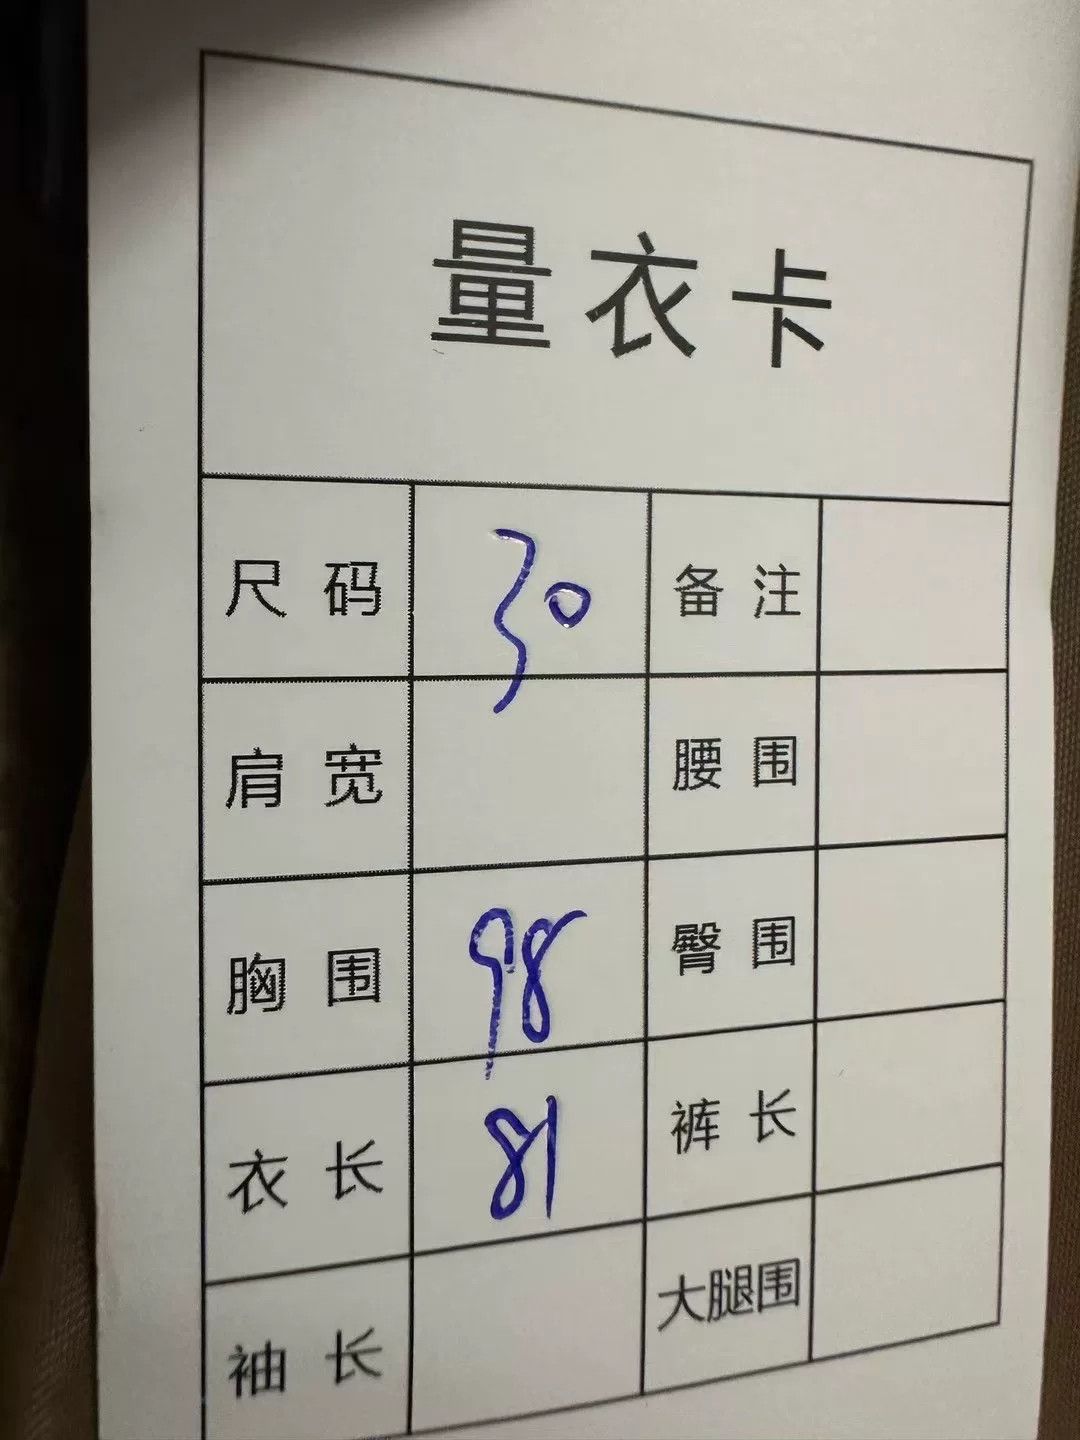 量衣卡
尺码 30 备注
肩宽 腰围
胸围 98 臀围
衣长 81 裤长
袖长 大腿围